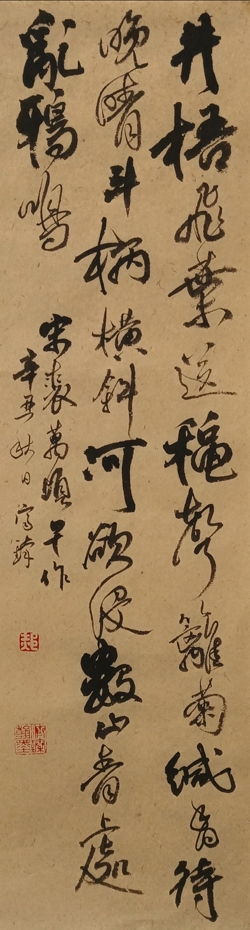 井梧飛葉送穐聲籬菊緘香待
晚晴斗柄橫斜河欲沒數山青處
亂鴉鳴
宋裘萬頃早作
辛丑秋日